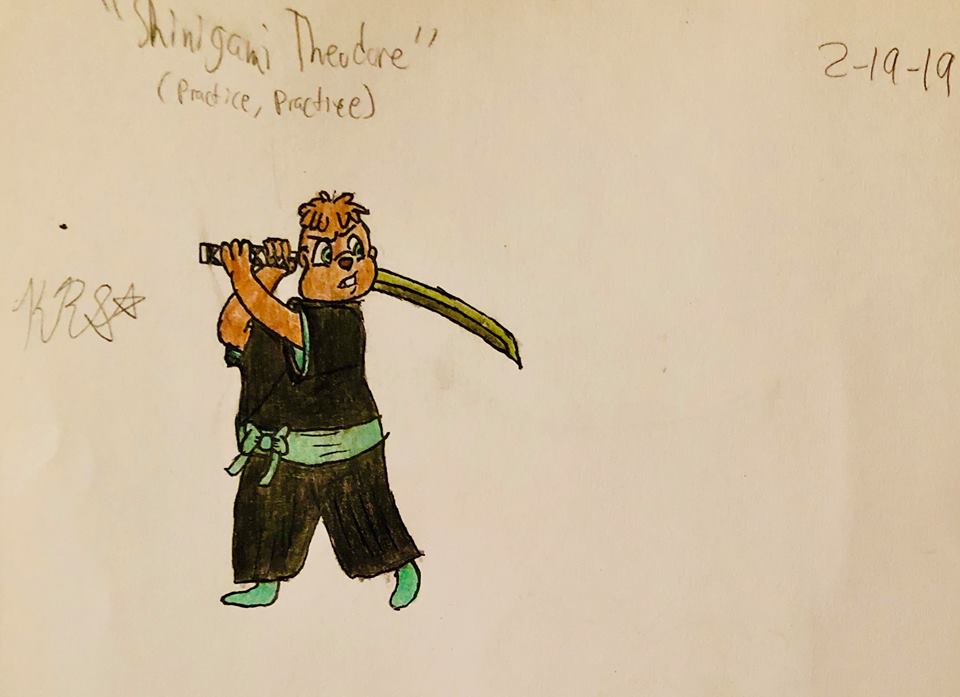 "Shinigami Theodore"
(Practice, Practice)
2-19-19
KRS☆